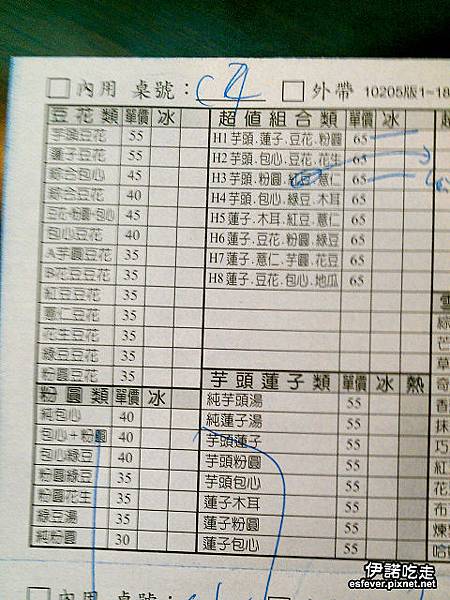 內用 桌號：C4 外帶 10205版1~18
豆花類 單價 冰
芋頭豆花 55
蓮子豆花 55
綜合包心 45
綜合豆花 40
豆花+粉圓+包心 45
包心豆花 40
A芋圓豆花 35
B花豆豆花 35
紅豆豆花 35
薏仁豆花 35
花生豆花 35
綠豆豆花 35
粉圓豆花 35
粉圓類 單價 冰
純包心 40
包心+粉圓 40
包心綠豆 40
粉圓綠豆 35
粉圓花生 35
綠豆湯 35
純粉圓 30
超值組合類 單價 冰
H1 芋頭.蓮子.豆花.粉圓 65
H2 芋頭.包心.豆花.花生 65
H3 芋頭.粉圓.紅豆.薏仁 65
H4 芋頭.包心.綠豆.木耳 65
H5 蓮子.木耳.紅豆.薏仁 65
H6 蓮子.豆花.粉圓.綠豆 65
H7 蓮子.薏仁.芋圓.花豆 65
H8 蓮子.豆花.包心.地瓜 65
芋頭蓮子類 單價 冰 熱
純芋頭湯 55
純蓮子湯 55
芋頭蓮子 55
芋頭粉圓 55
芋頭包心 55
蓮子木耳 55
蓮子粉圓 55
蓮子包心 55
芒
草
奇
香
抹
巧
紅
花
布
煉
哈
內用 桌號：
外帶
伊諾吃走
esfever.pixnet.net